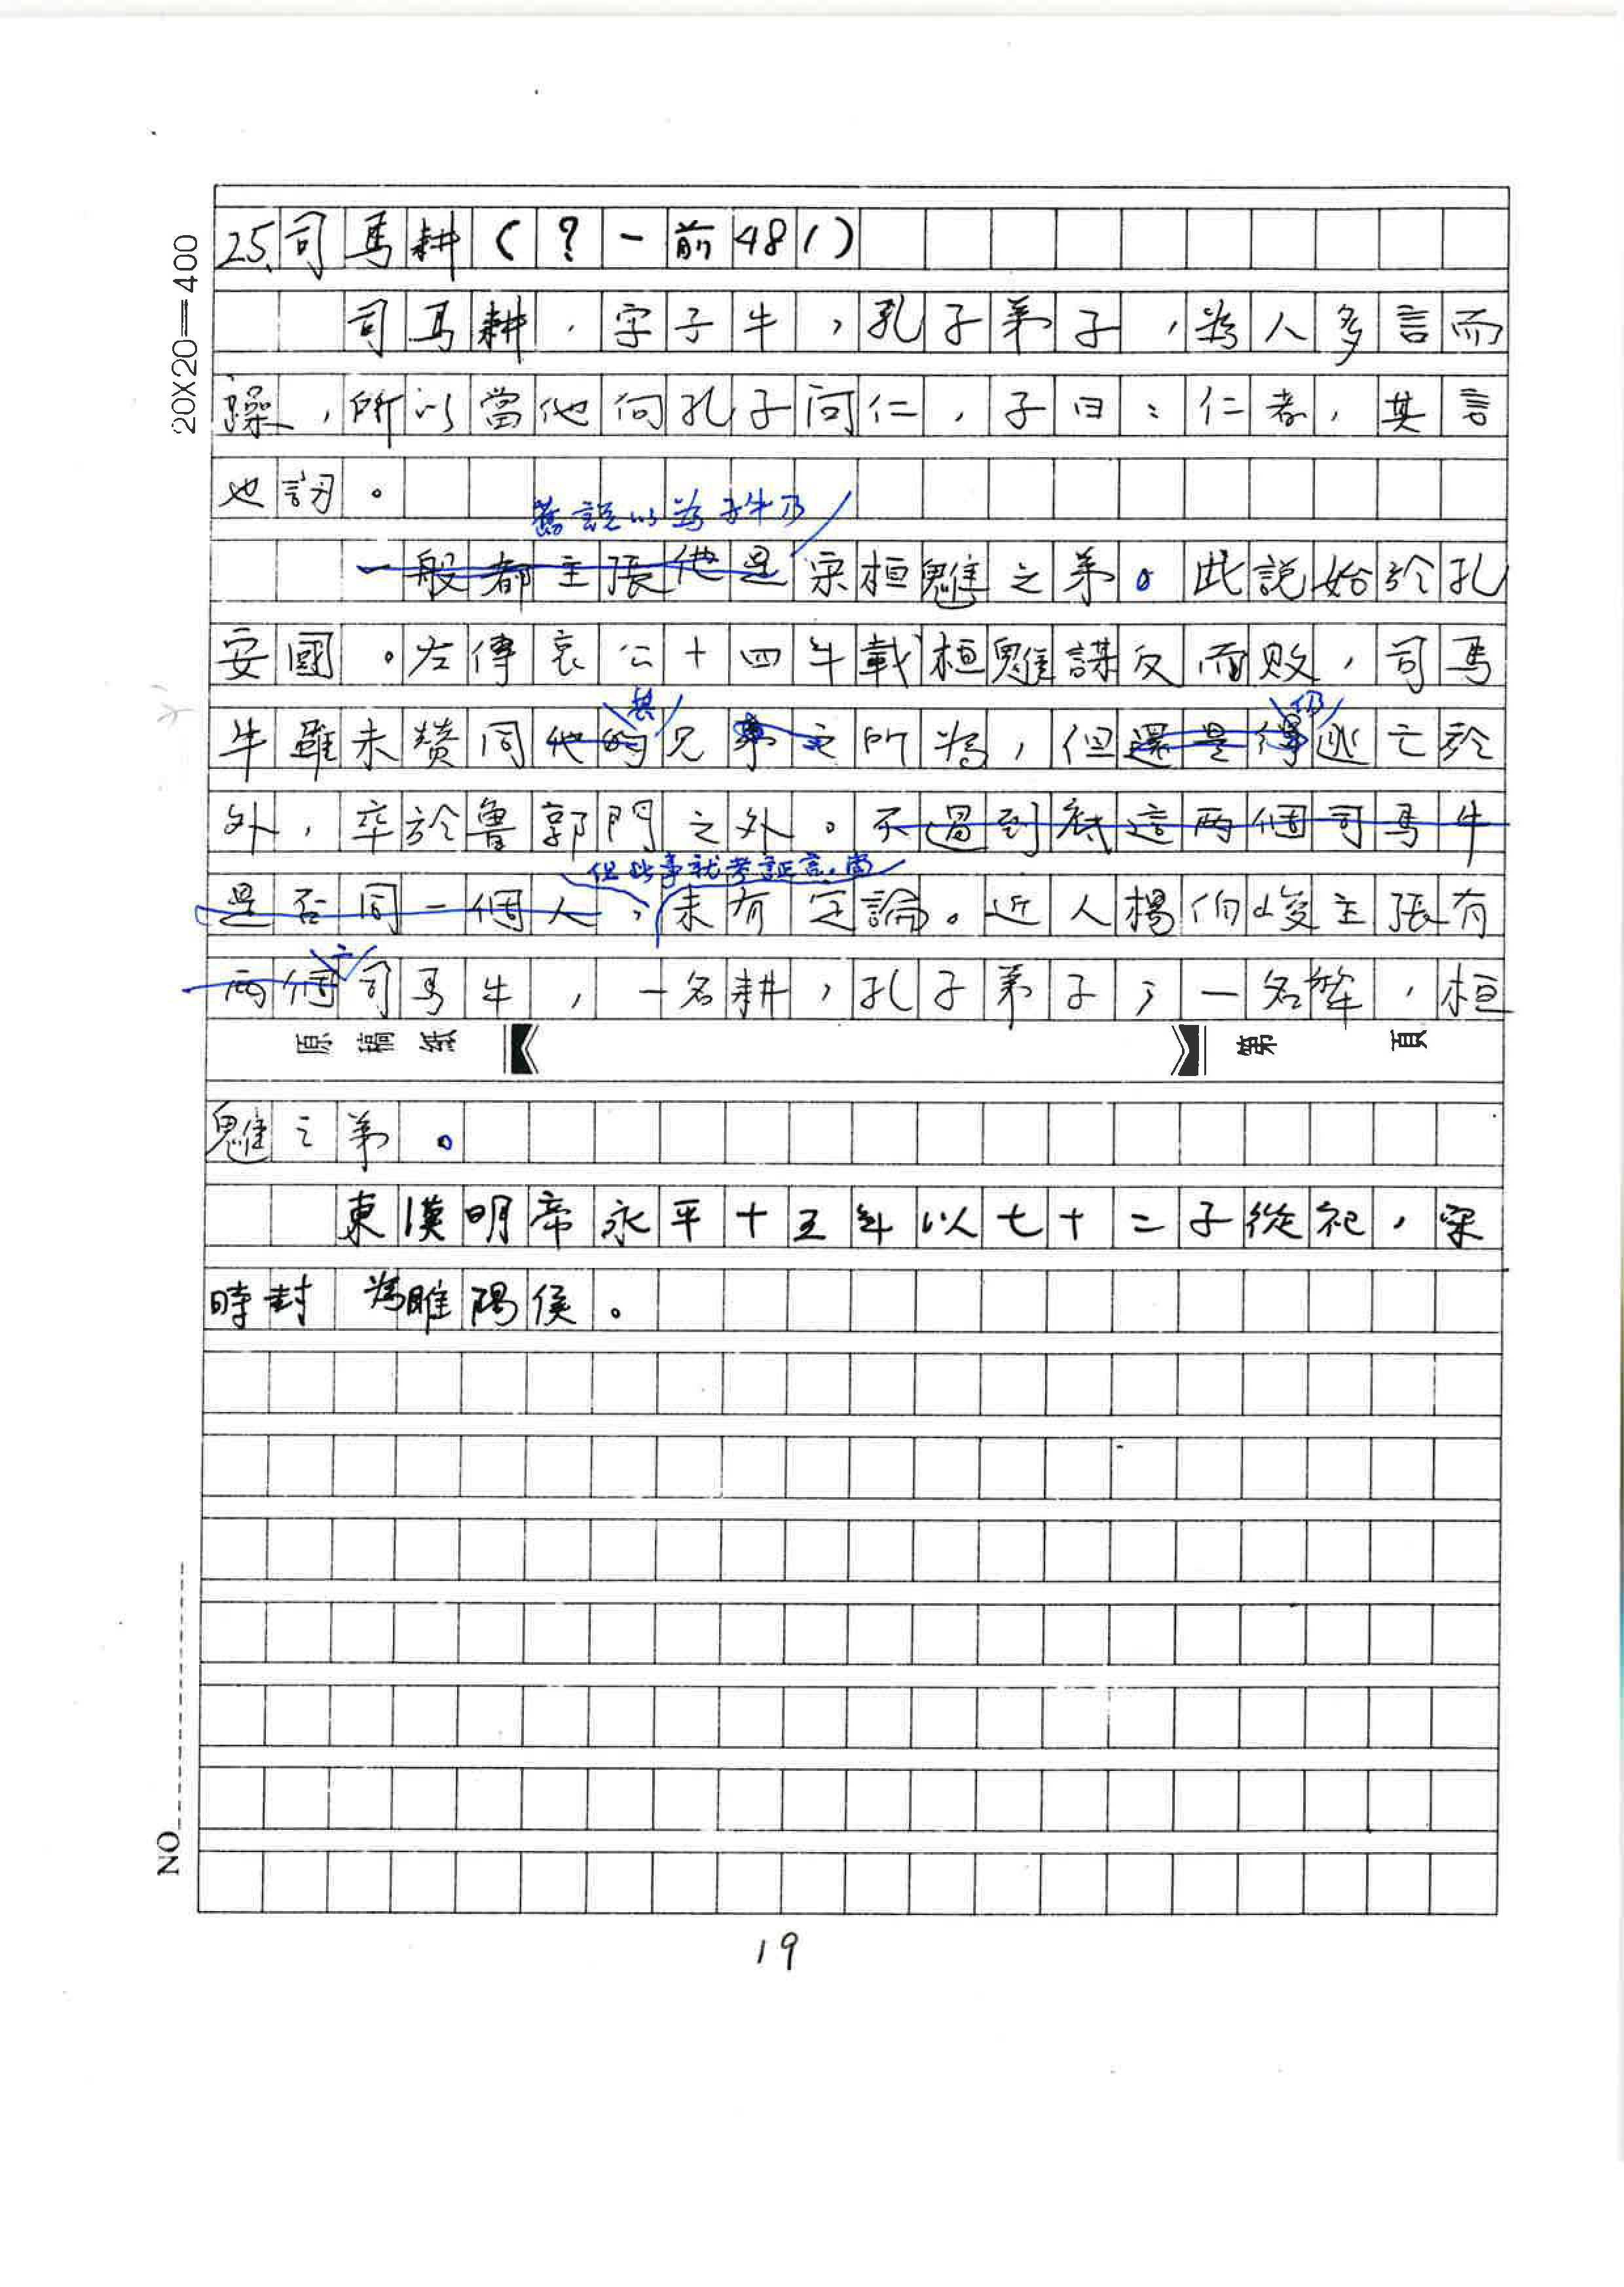 20X20=400
25.司馬耕(？-前481)
司馬耕，字子牛，孔子弟子，為人多言而
躁，所以當他向孔子問仁，子曰：仁者，其言
也訒。
舊說以為子牛乃
一般都主張他是宋桓魋之弟。此說始於孔
安國。左傳哀公十四年載桓魋謀反而敗，司馬
其 仍
牛雖未贊同他的兄弟之所為，但還是得逃亡於
外，卒於魯郭門之外。不過到底這兩個司馬牛
但此事就考証言，尚
是否同一個人，未有定論。近人楊伯峻主張有
二
兩個司馬牛，一名耕，孔子弟子；一名犂，桓
原稿紙 第 頁
魋之弟。
東漢明帝永平十五年以七十二子從祀，宋
時封為睢陽侯。
NO
19